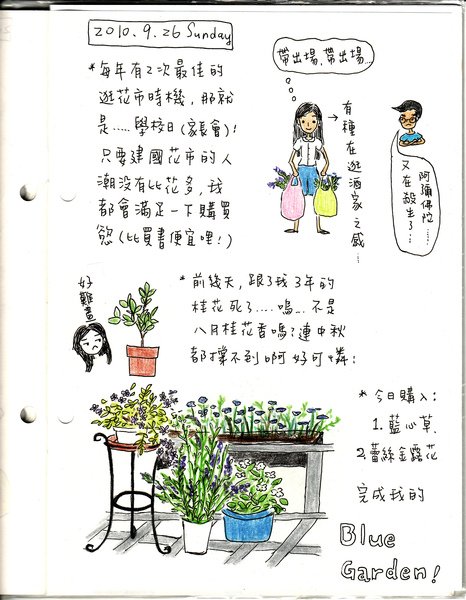 2010.9.26 Sunday
*每年有2次最佳的
逛花市時機,那就
是....學校日(家長會)!
只要建國花市的人
潮沒有比花多,我
都會滿足一下購買
慾(比買書便宜哩!)
帶出場,帶出場...
→有種在逛酒家之感...
阿彌佛陀......
又在殺生了...
*前幾天,跟了我3年的
桂花死了....嗚...不是
八月桂花香嗎?連中秋
都撐不到啊好可憐!
好難畫
*今日購入:
1.藍心草
2.蕾絲金露花
完成我的
Blue
Garden!